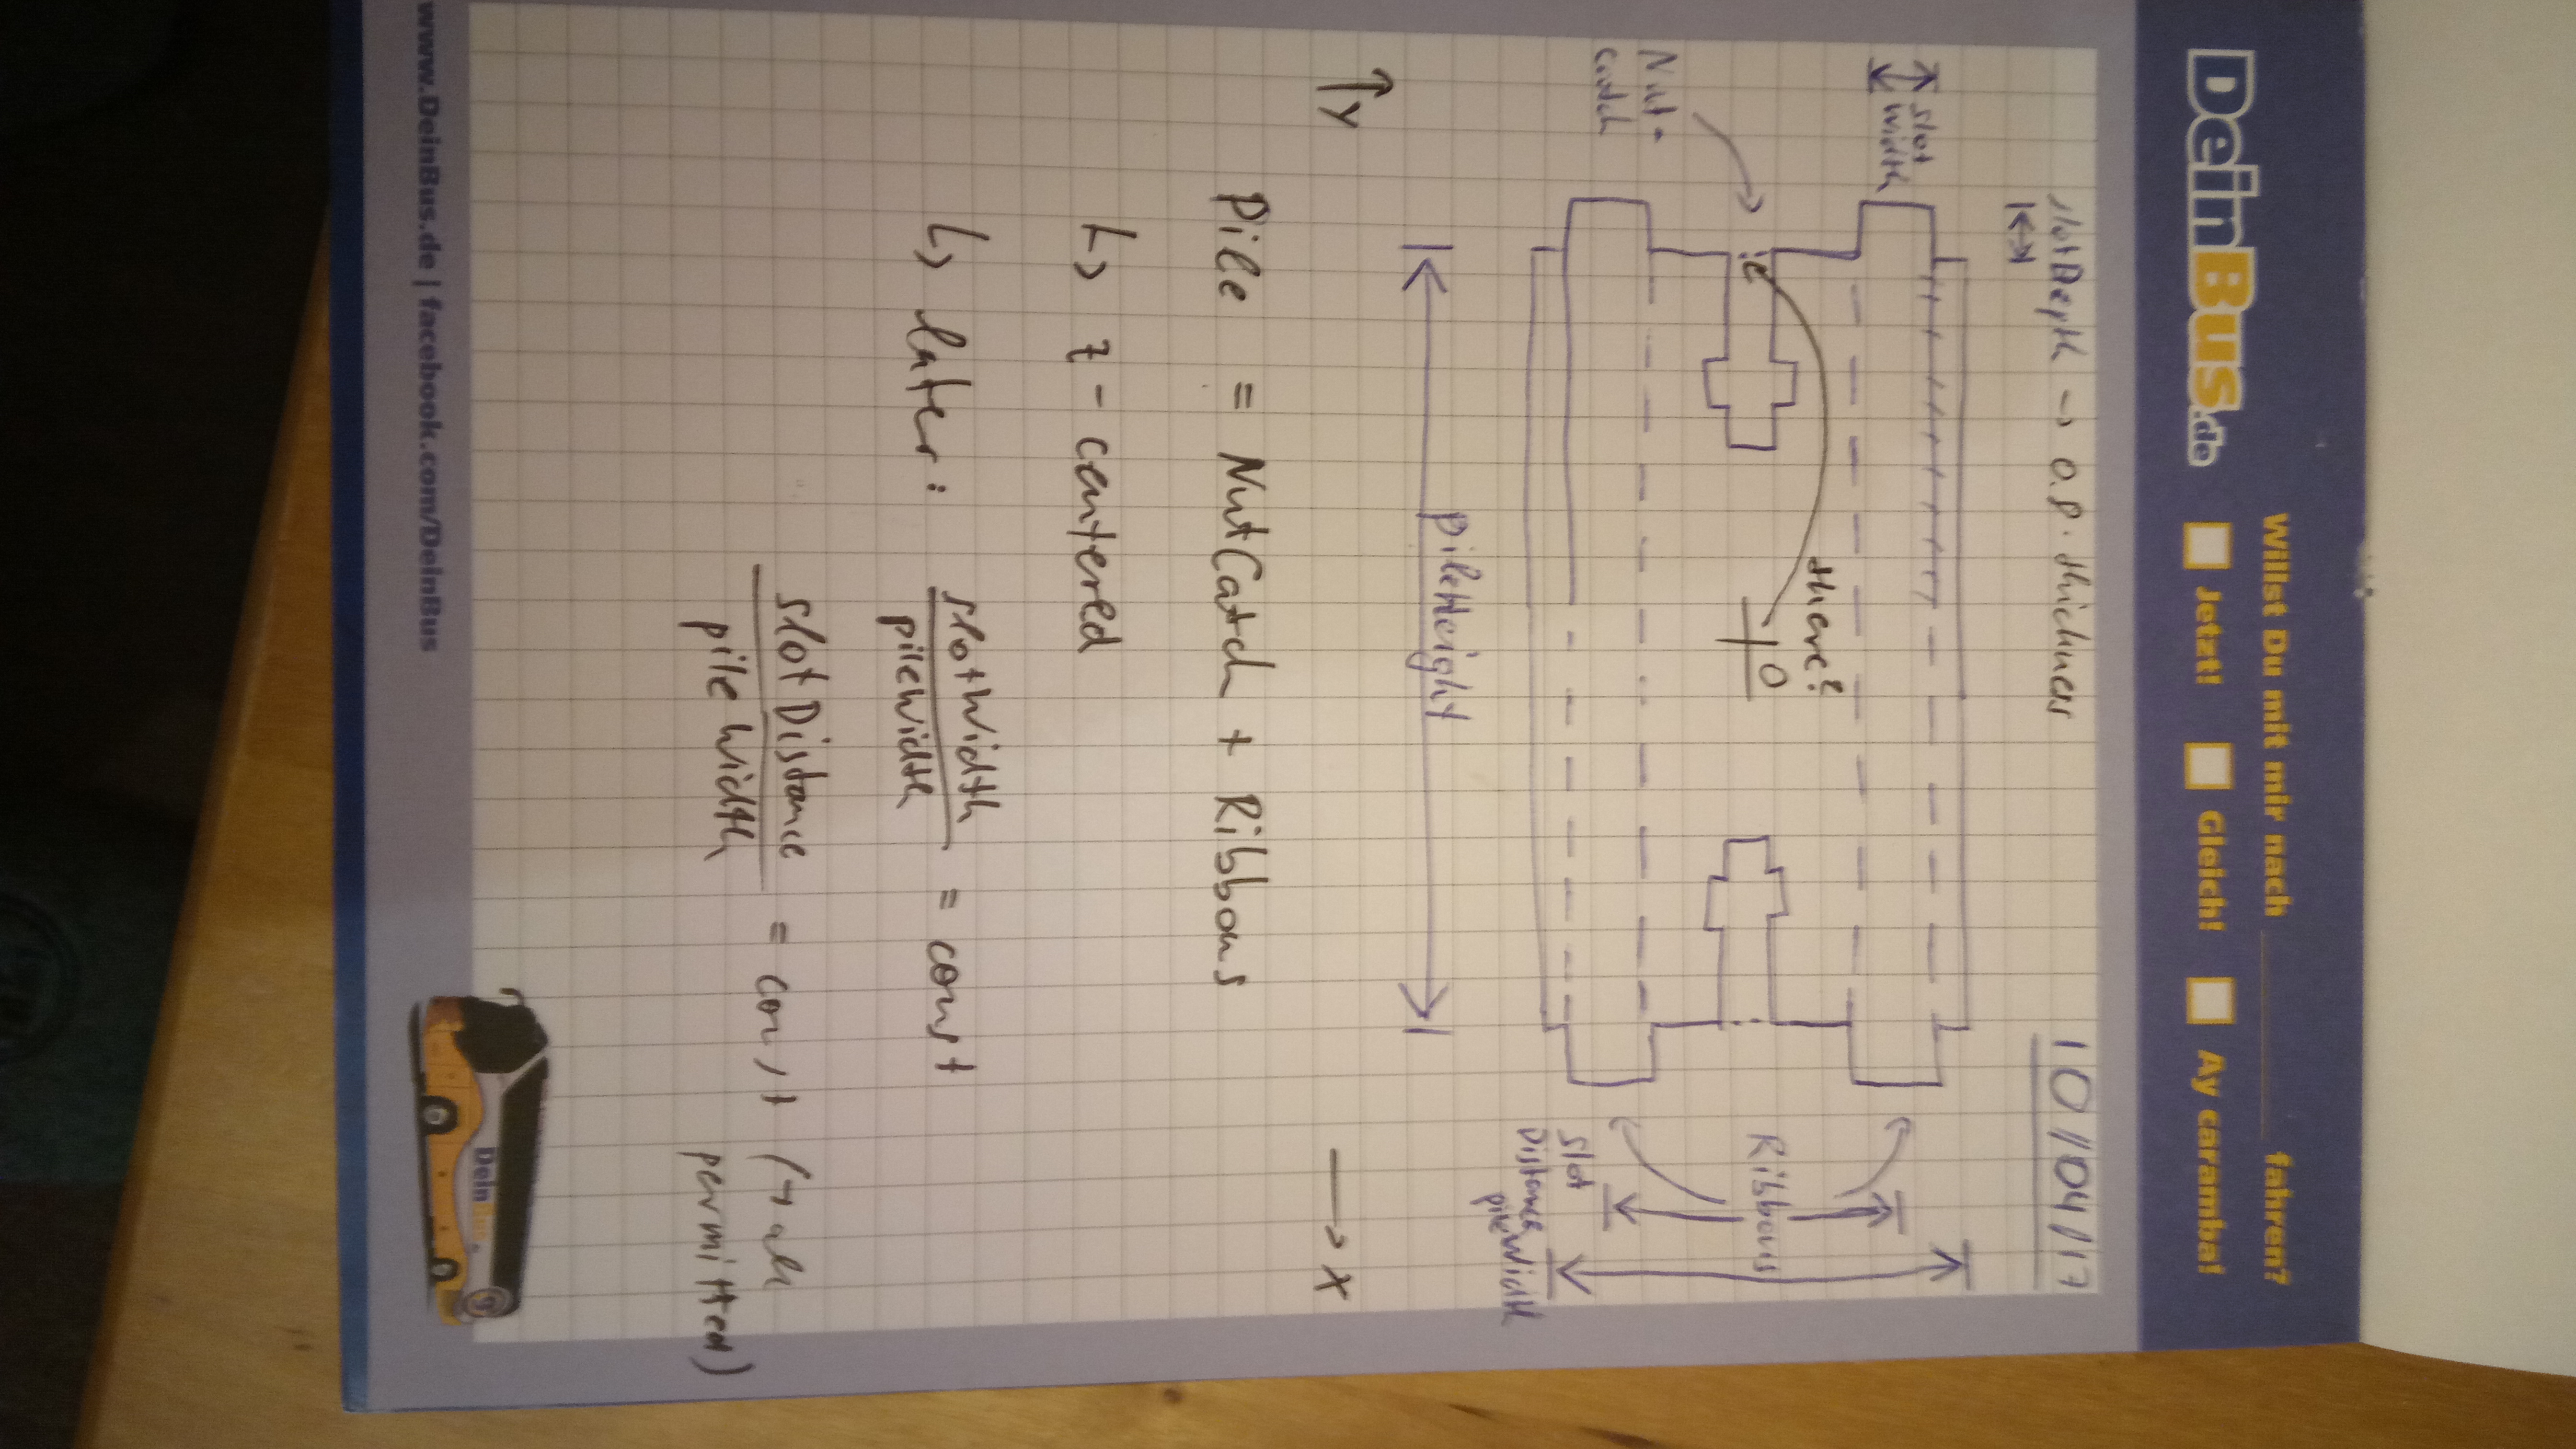 Willst Du mit mir nach ________ fahren?
DeinBus.de
Jetzt! Gleich! Ay caramba!
10/04/17
slotDepth → 0.8 · thickness
slot
width
there?
0
Nut-
catch
Ribbons
slot
Distance
pileWidth
pileHeight
y
x
Pile = NutCatch + Ribbons
↳ z-centered
↳ later: slotWidth / pileWidth = const
slotDistance / pileWidth = const
permitted)
www.DeinBus.de | facebook.com/DeinBus
Dein